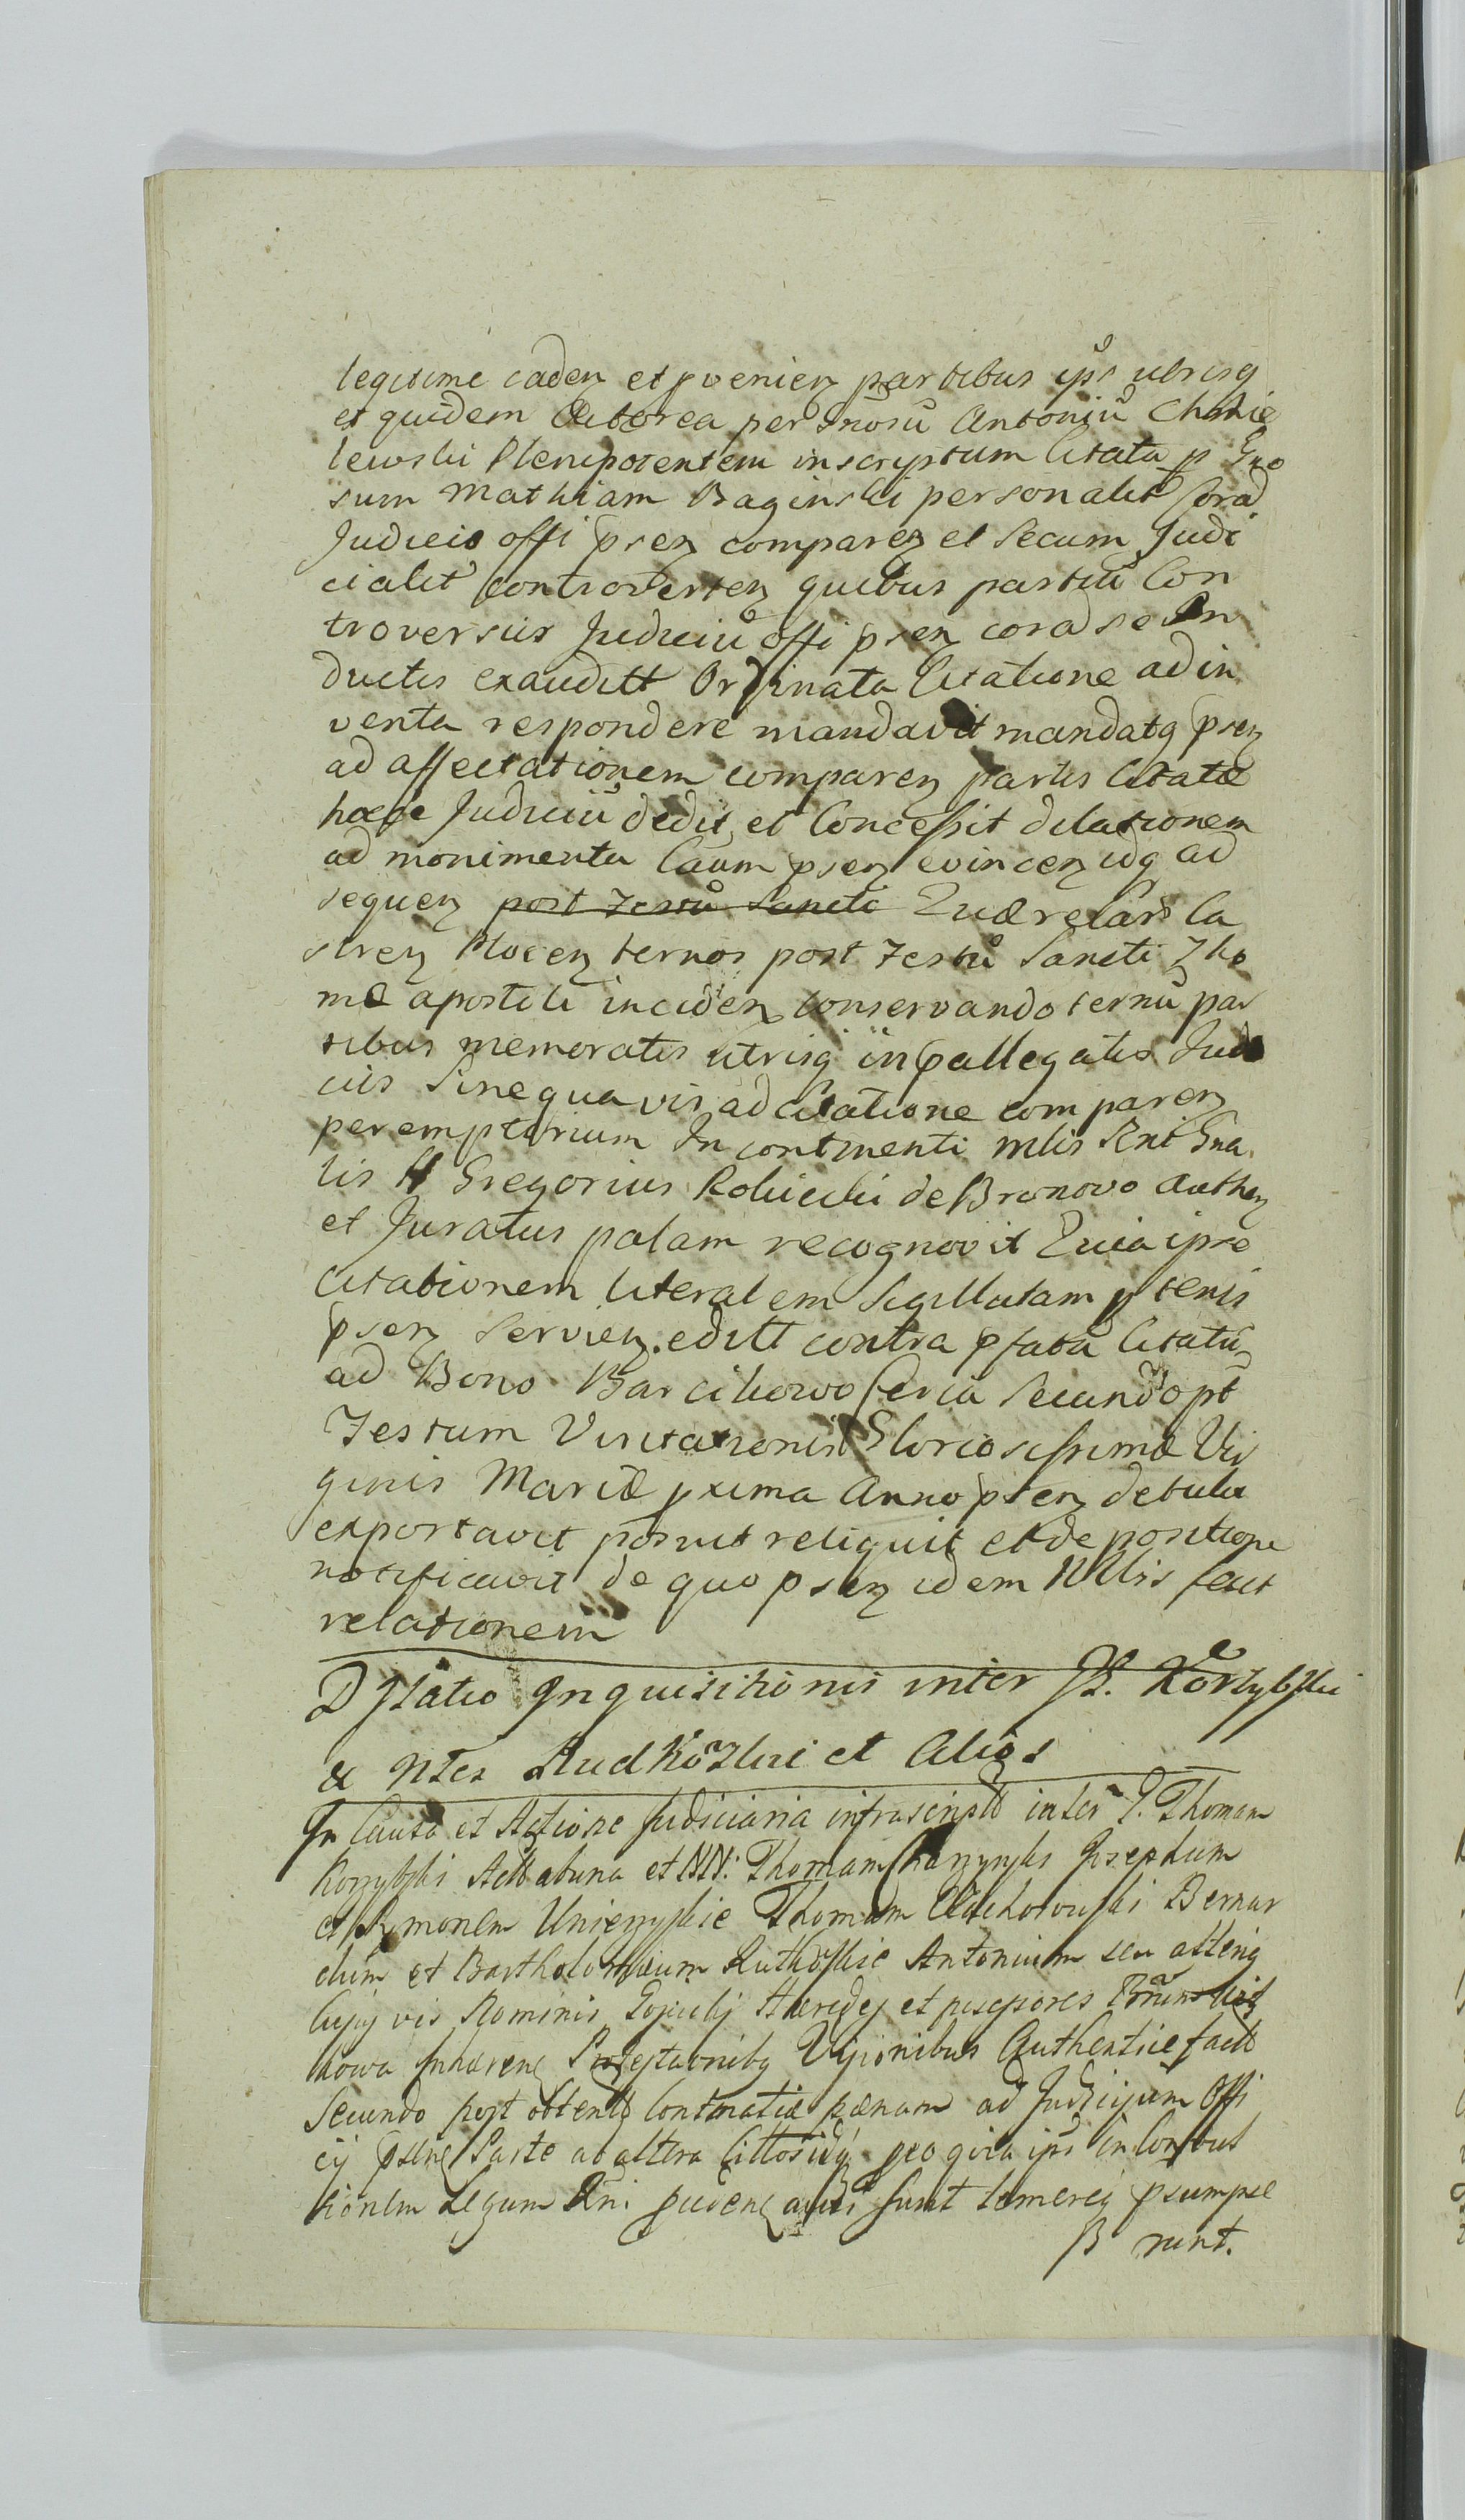 legitime caden et pvenien partibus ips utrisq
et quidem Actorea per Gnosu Antoniu Chmie
lewski Plenipotentem inscriptum Citata p Gno
sum Mathiam Baginski personalit Cora
Judicio offi psen comparen et secum Judi
cialit controverten quibus partiu Con
troversiis Judiciu offi psen cora se in
ductis exauditt Ordinata Citatione ad in
venta respondere mandavit mandatq psen
ad affectationem comparen partis Citatæ
hocce Judiciu dedit et Concessit dilationem
ad monimenta Caum psen evincen idq ad
sequen post Festu Sancti Querelars Ca
stren Plocen ternos post Festu Sancti Tho
mæ apostoli inciden conservando ternu par
tibus memoratis utrisq in pallegatis Judi
ciis Sine quavis adcitatione comparen
peremptorium In continenti Mlis Rni Gna
lis H Gregorius Robicki de Bronovo authen
et Juratus palam recognovit Quia ipse
citationem literalem Sigillatam p tenis
psen servien editt contra pfatu Citatu
ad Bono Barcikowo feria Secunda pt
Festum Visitationis Gloriosissimæ Vir
ginis Mariæ pxima Anno psen detulit
exportavit posuit reliquit et de positione
notificavit de quo psen idem Mlis fecit
relationem
Dilatio Inquisitionis inter Korzybski
& Ntes Rudkoski et Alios
In Causa et Actione Judiciaria infrascripta inter G. Thomam
Korzybski Act abuna et NN: Thomam Josephum
et Symonem Unierzyskie Thomam Bernar
dum et Bartholomæum Rutkoskie Antonium seu alteriq
Cujq vis Nominis Gojscki Hæredes et possesores
kowa Inhæren Protestaonibq Visionibus Authentice fact
Secundo post obtent Contumatiæ pænam ad Judicium Offi
cij psen Parte ab altera Cittos idq pro quia ipsi in Contvent
tionem Legum Rni puden ausi sunt temereq psumpse
B runt.